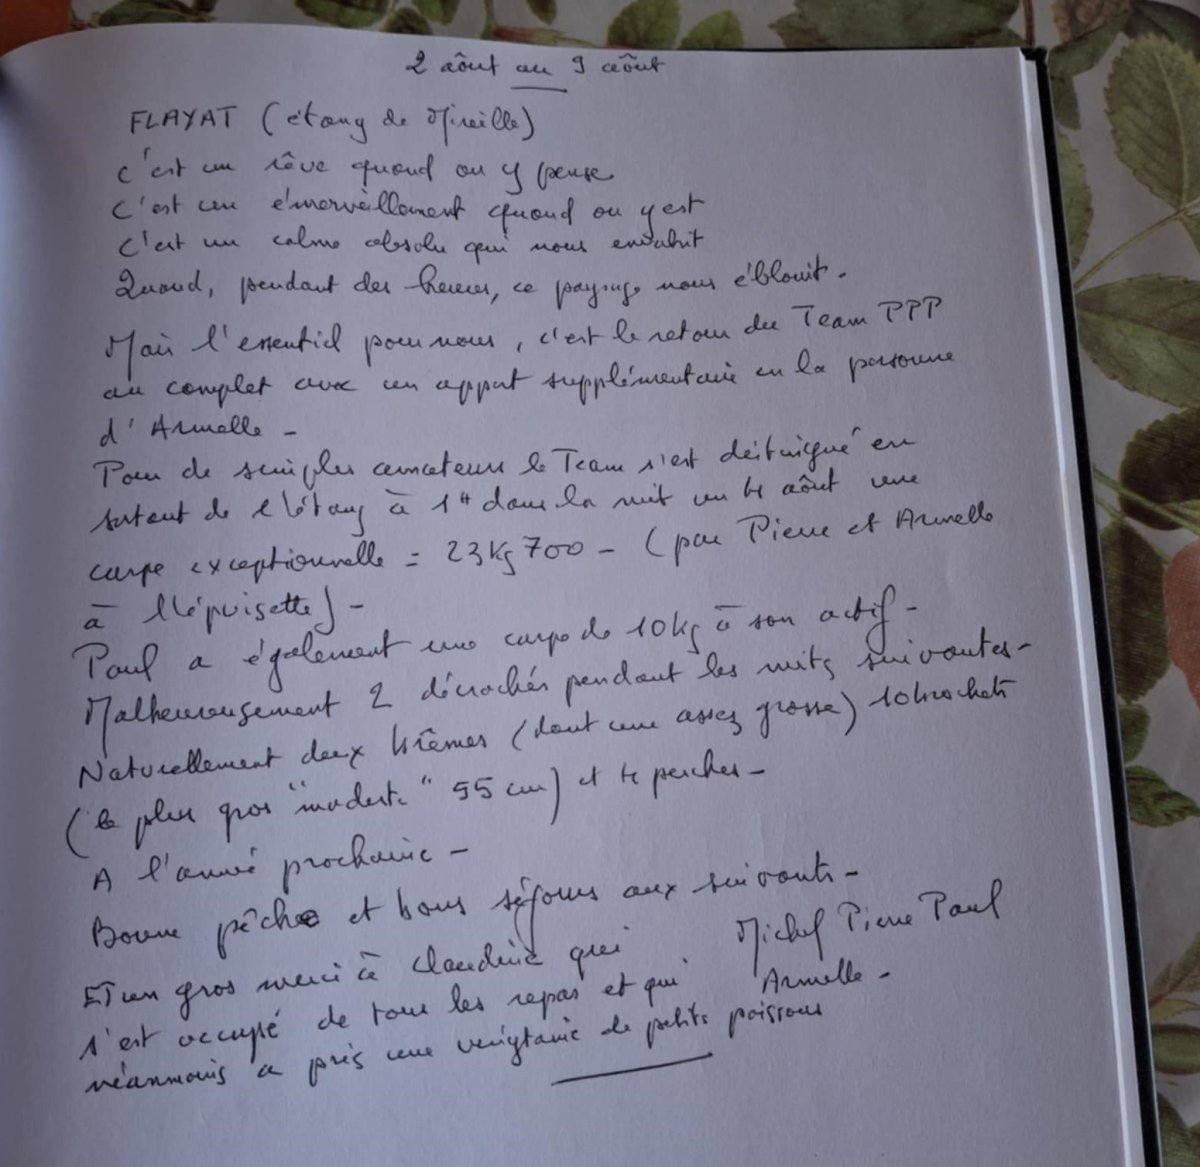 2 août au 9 août
FLAYAT (étang de Mireille)
C'est un rêve quand on y pense
C'est un émerveillement quand on y est
C'est un calme absolu qui nous envahit
Quand, pendant des heures, ce paysage nous éblouit.
Mais l'essentiel pour nous, c'est le retour du Team PPP
au complet avec un apport supplémentaire en la personne
d'Armelle -
Pour de simples amateurs le Team s'est distingué en
sortant de l'étang à 1H dans la nuit du 4 août une
carpe exceptionnelle = 23Kg700 - (par Pierre et Armelle
à l'épuisette) -
Paul a également une carpe de 10Kg à son actif -
Malheureusement 2 décrochés pendant les nuits suivantes -
Naturellement deux brêmes (dont une assez grosse) 10 brochets
(le plus gros "modeste" 55 cm) et 4 perches -
A l'année prochaine -
Bonne pêche et bons séjours aux suivants -
Et un gros merci à Claudine qui
s'est occupé de tous les repas et qui
néanmoins a pris une vingtaine de petits poissons
Michel Pierre Paul
Armelle -